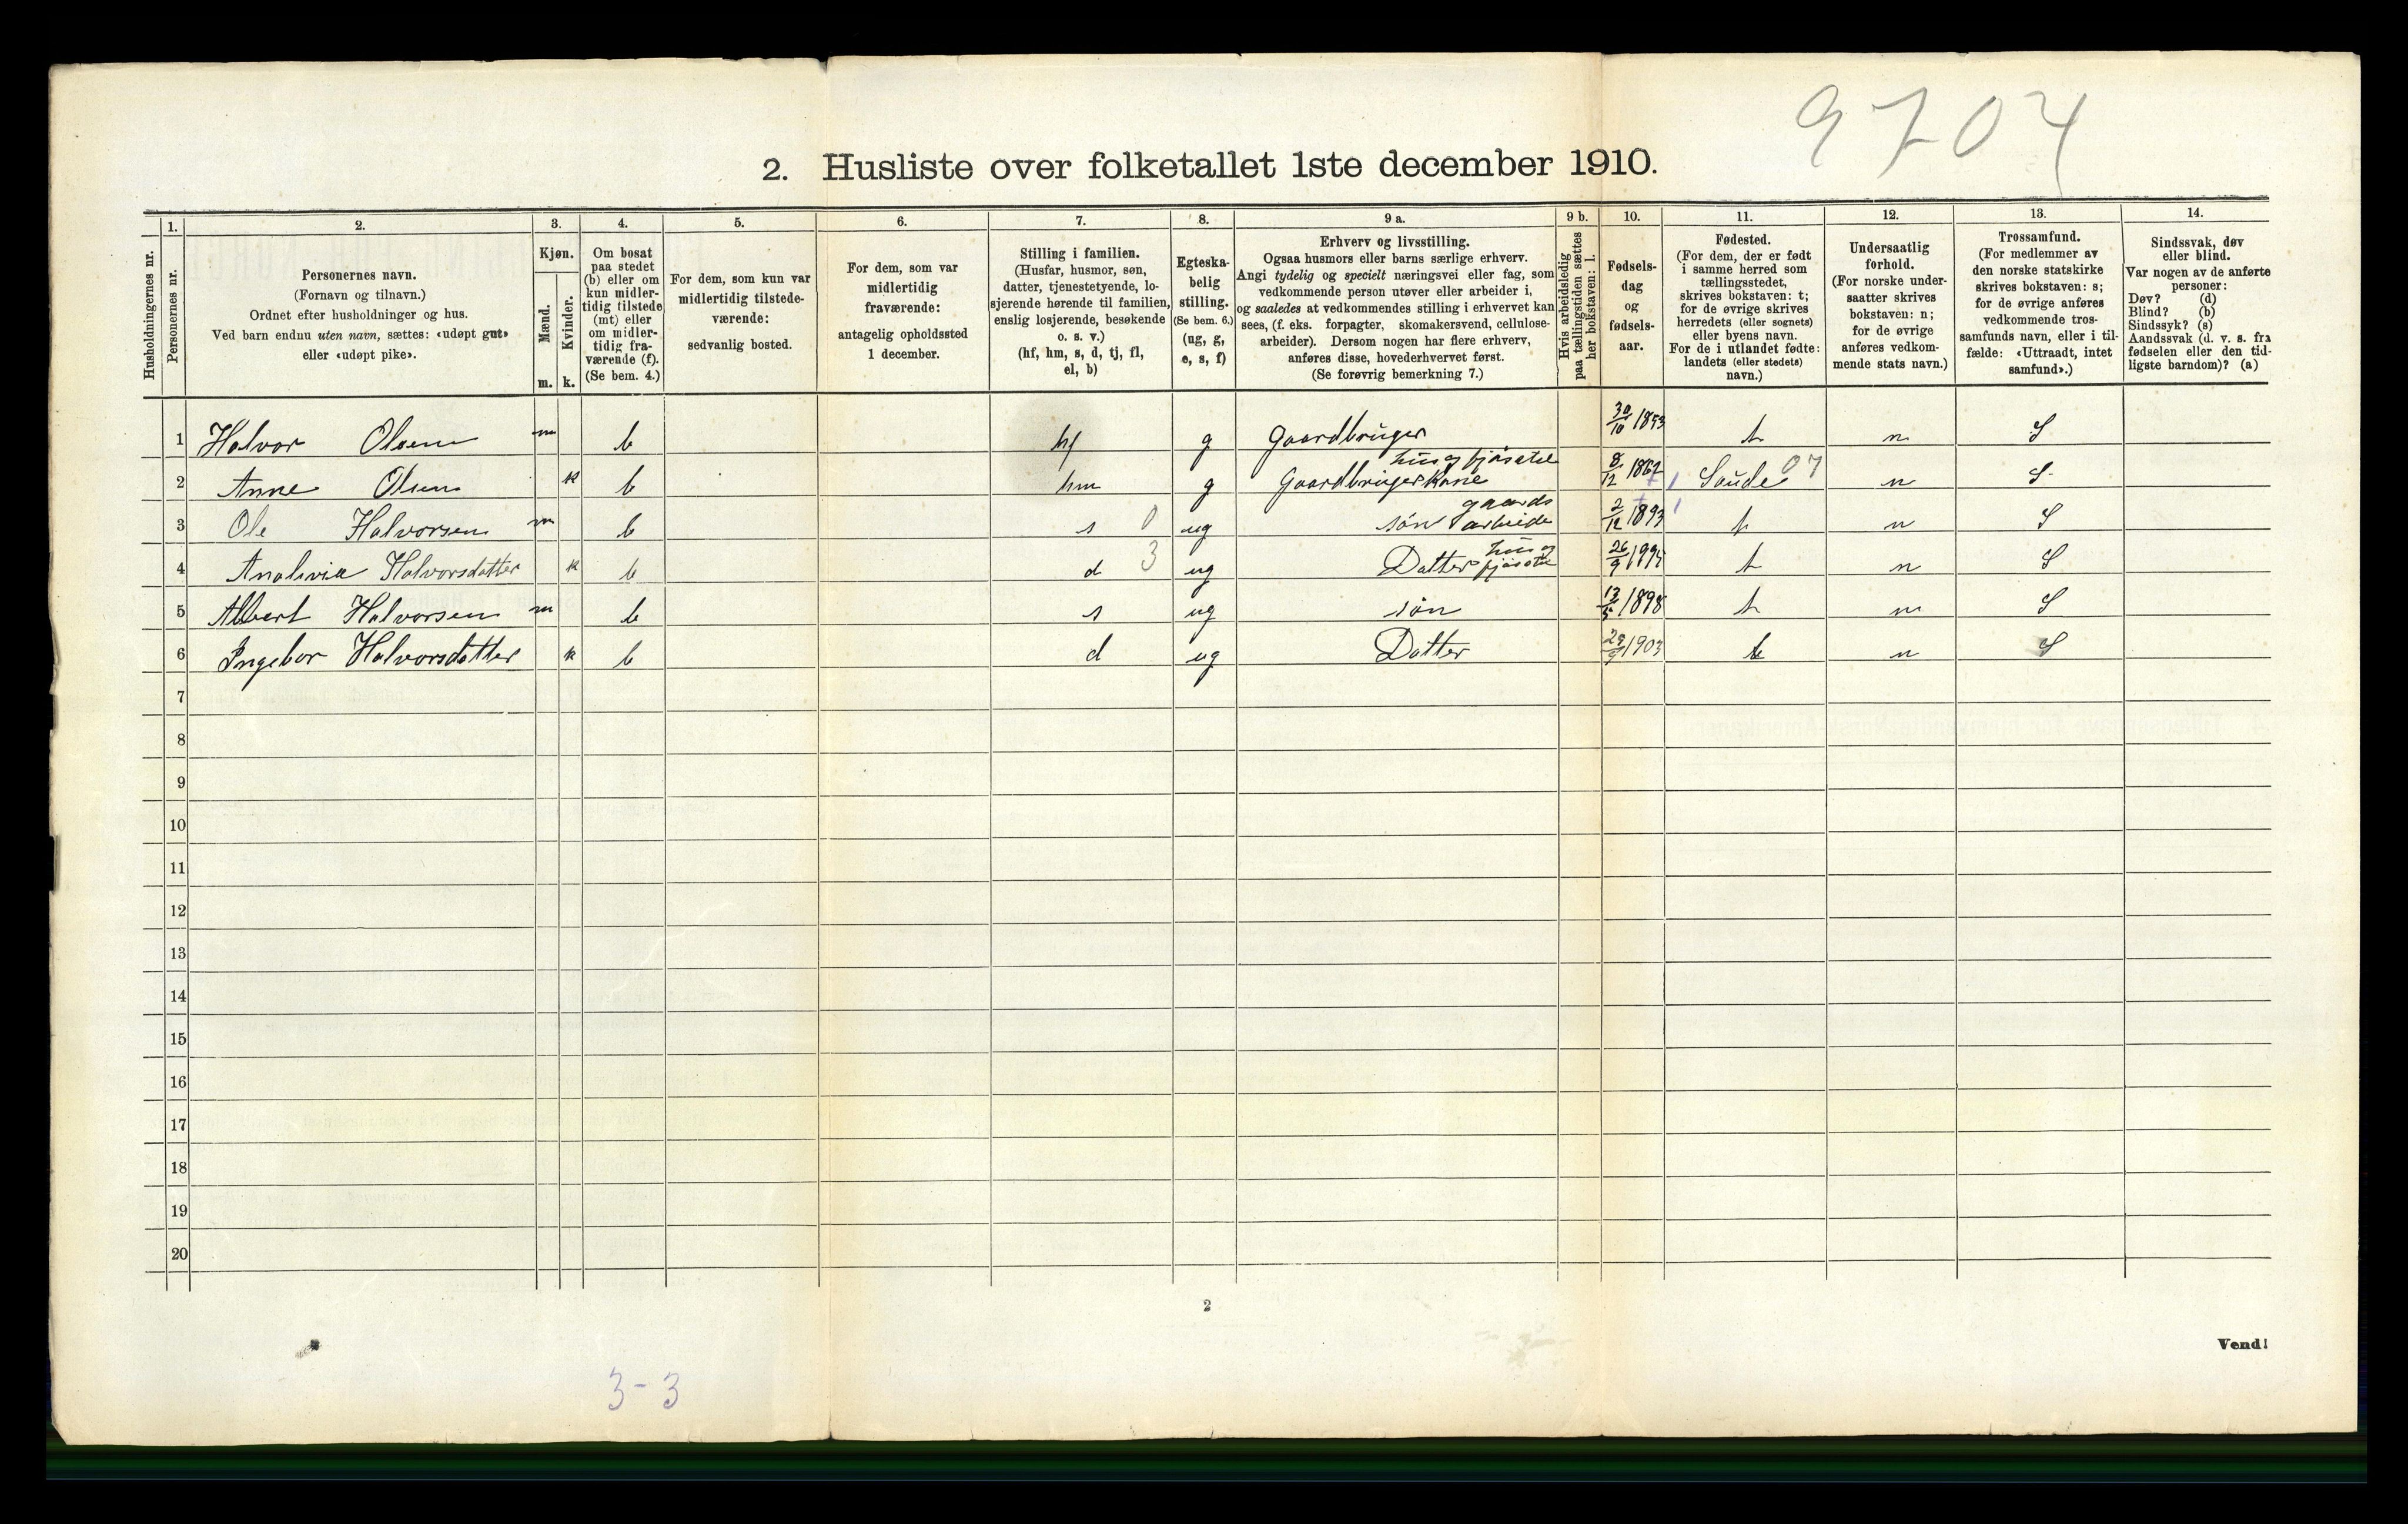 9704
2. Husliste over folketallet 1ste december 1910.
Husholdningernes nr.
1.
Personernes nr.
2.
Personernes navn.
(Fornavn og tilnavn.)
Ordnet efter husholdninger og hus.
Ved barn endnu uten navn, sættes: «udøpt gut»
eller «udøpt pike».
3.
Kjøn.
Mænd.
Kvinder.
m. k.
4.
Om bosat
paa stedet
(b) eller om
kun midler-
tidig tilstede
(mt) eller
om midler-
tidig fra-
værende (f).
(Se bem. 4.)
5.
For dem, som kun var
midlertidig tilstede-
værende:
sedvanlig bosted.
6.
For dem, som var
midlertidig
fraværende:
antagelig opholdssted
1 december.
7.
Stilling i familien.
(Husfar, husmor, søn,
datter, tjenestetyende, lo-
sjerende hørende til familien,
enslig losjerende, besøkende
o. s. v.)
(hf, hm, s, d, tj, fl,
el, b)
8.
Egteska-
belig
stilling.
(Se bem. 6.)
(ug, g,
e, s, f)
9 a.
Erhverv og livsstilling.
Ogsaa husmors eller barns særlige erhverv.
Angi tydelig og specielt næringsvei eller fag, som
vedkommende person utøver eller arbeider i,
og saaledes at vedkommendes stilling i erhvervet kan
sees, (f. eks. forpagter, skomakersvend, cellulose-
arbeider). Dersom nogen har flere erhverv,
anføres disse, hovederhvervet først.
(Se forøvrig bemerkning 7.)
9 b.
Hvis arbeidsledig
paa tællingstiden sættes
her bokstaven: l.
10.
Fødsels-
dag
og
fødsels-
aar.
11.
Fødested.
(For dem, der er født
i samme herred som
tællingsstedet,
skrives bokstaven: t;
for de øvrige skrives
herredets (eller sognets)
eller byens navn.
For de i utlandet fødte:
landets (eller stedets)
navn.)
12.
Undersaatlig
forhold.
(For norske under-
saatter skrives
bokstaven: n;
for de øvrige
anføres vedkom-
mende stats navn.)
13.
Trossamfund.
(For medlemmer av
den norske statskirke
skrives bokstaven: s;
for de øvrige anføres
vedkommende tros-
samfunds navn, eller i til-
fælde: «Uttraadt, intet
samfund».)
14.
Sindssvak, døv
eller blind.
Var nogen av de anførte
personer:
Døv? (d)
Blind? (b)
Sindssyk? (s)
Aandssvak (d. v. s. fra
fødselen eller den tid-
ligste barndom)? (a)
1 Halvor Olsen m b hf g Gaardbruger 30/10 1853 t n S
2 Anne Olsen k b hm g Gaardbruger Kone hus og fjøsstel 8/12 1867 Saude 07 n S
3 Ole Halvorsen m b s 0 ug søn gaards arbeide 2/12 1893 t n S
4 Halvorsdatter k b d 3 ug Datter hus og fjøsstel 26/9 t n S
5 Albert Halvorsen m b s ug søn 13/5 1898 t n S
6 Ingebor Halvorsdatter k b d ug Datter 29/9 1903 t n S
7
8
9
10
11
12
13
14
15
16
17
18
19
20
2
Vend!
3-3